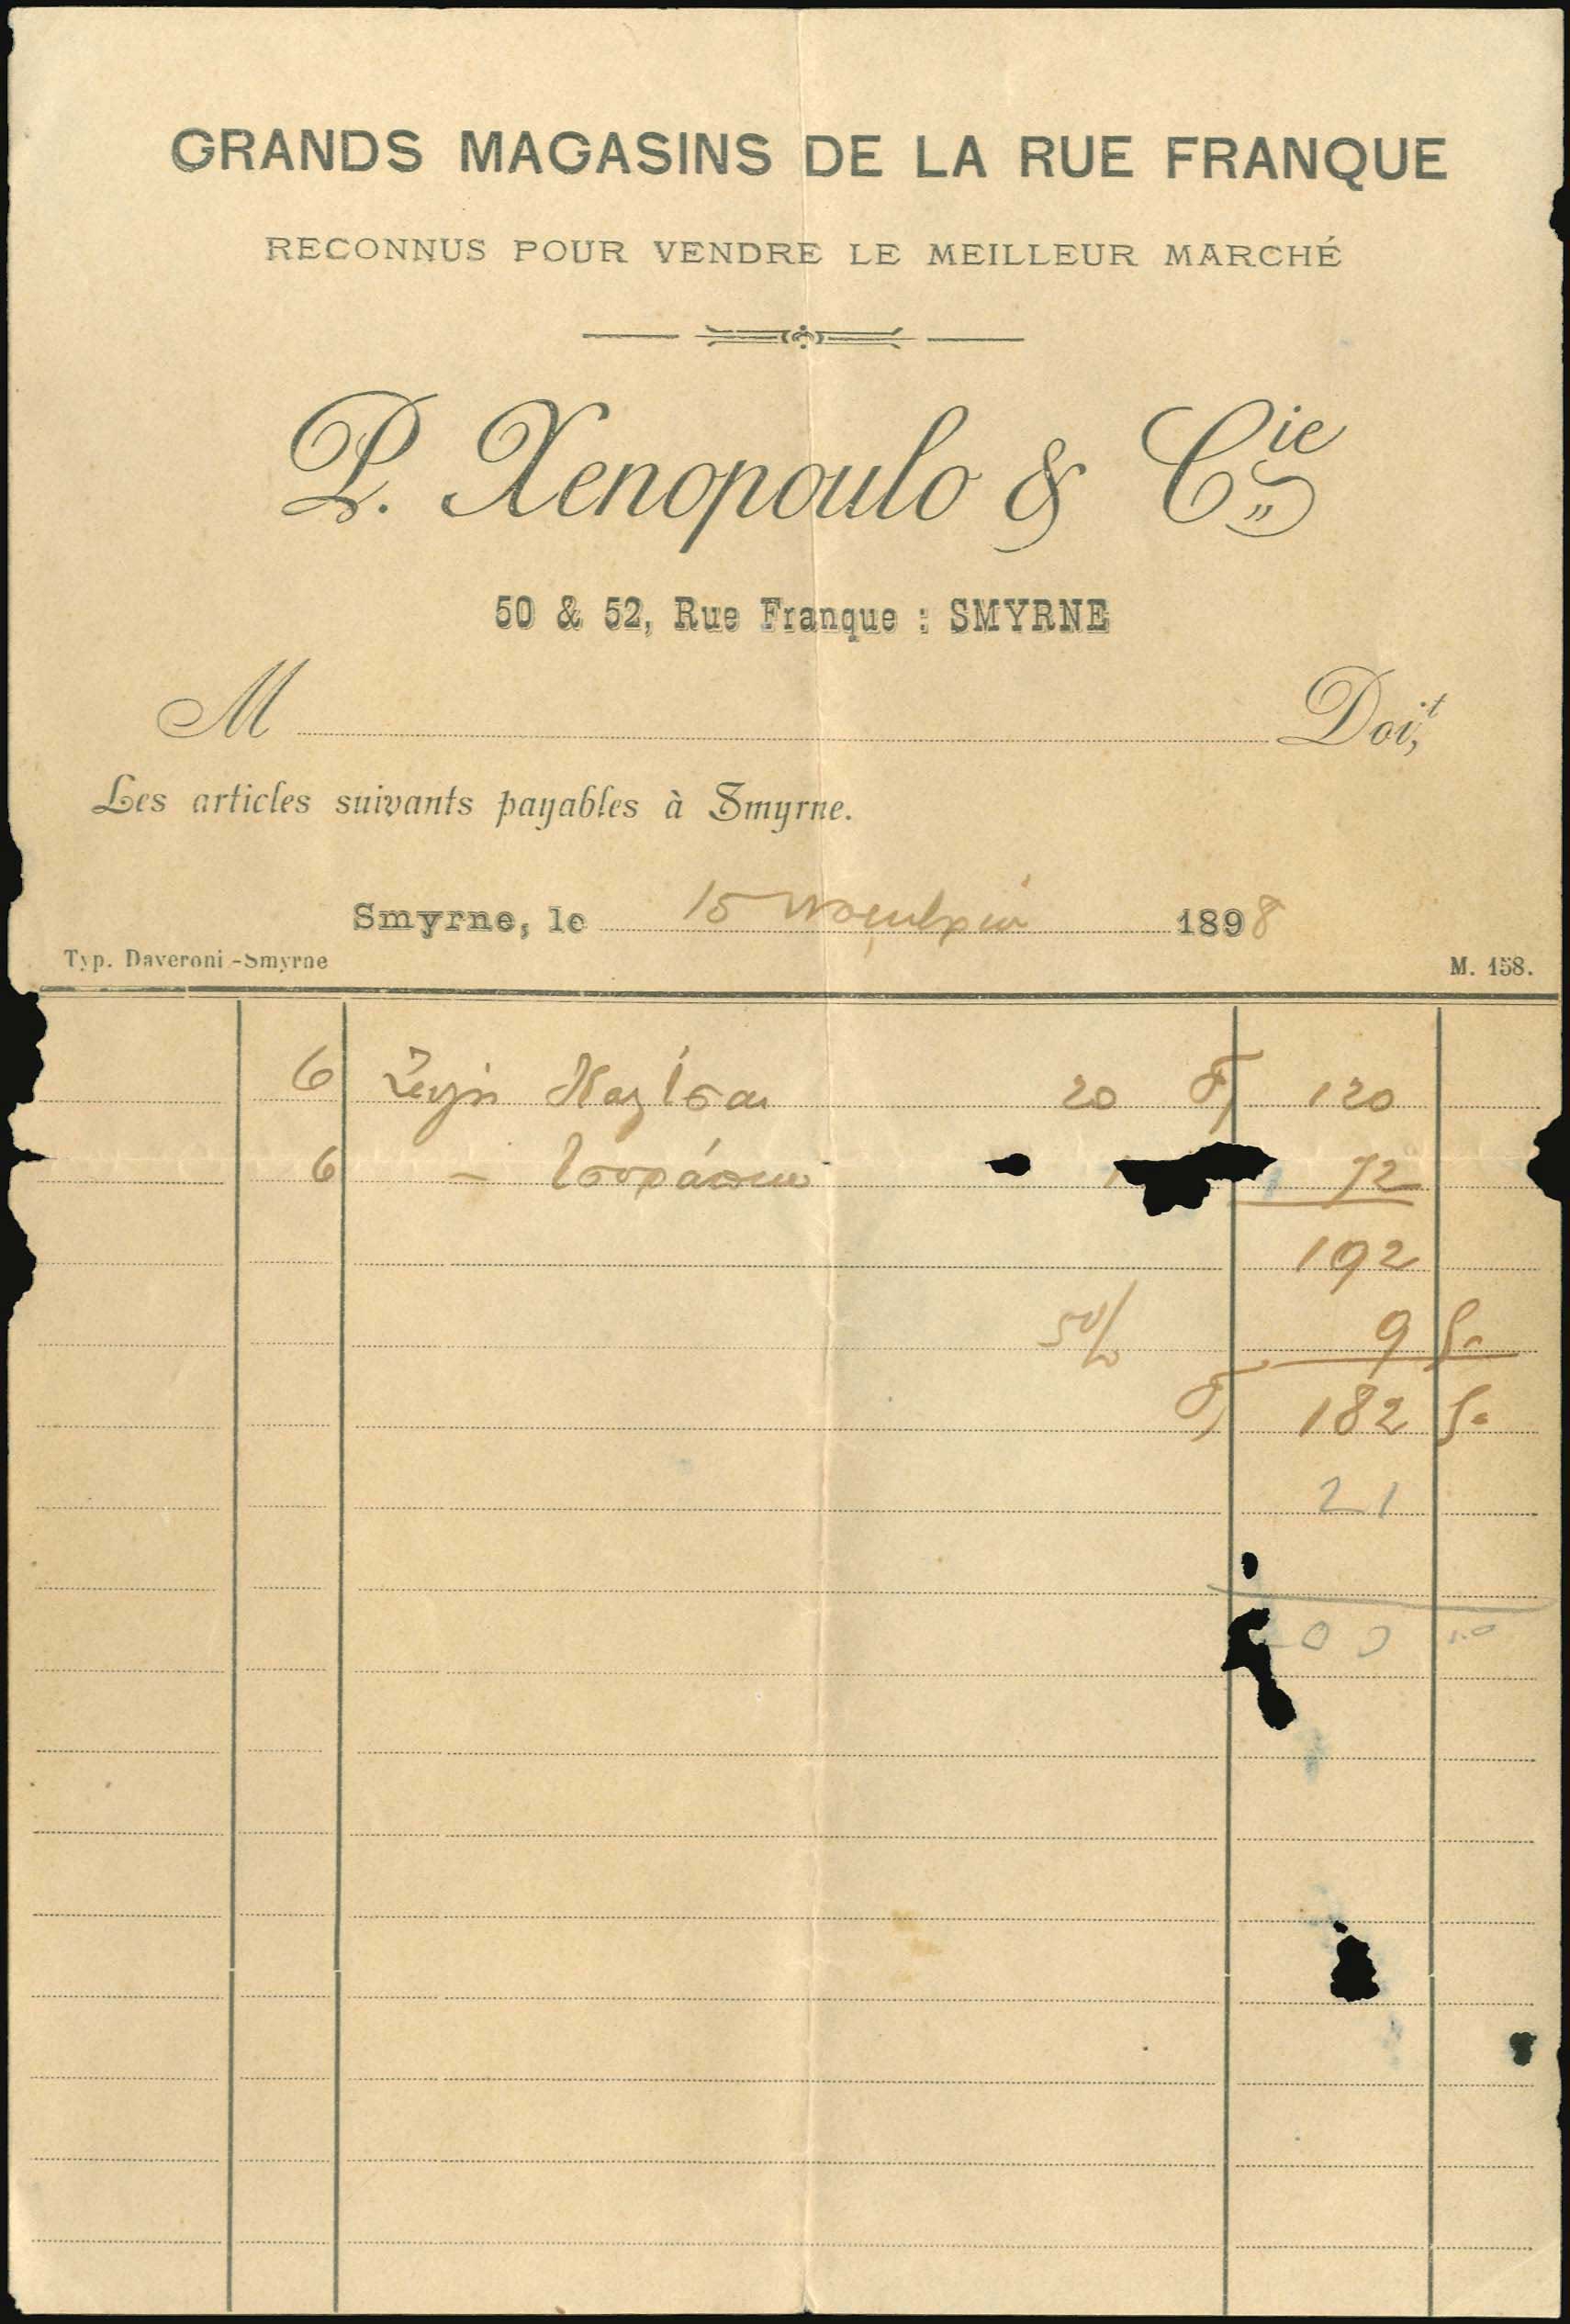 GRANDS MAGASINS DE LA RUE FRANQUE
RECONNUS POUR VENDRE LE MEILLEUR MARCHÉ
P. Xenopoulo & Cie
50 & 52, Rue Franque : SMYRNE
M Doit,
Les articles suivants payables à Smyrne.
Smyrne, le 15 1898
Typ. Daveroni - Smyrne M. 158.
6 20 120
6 72
192
5% 9
182
21